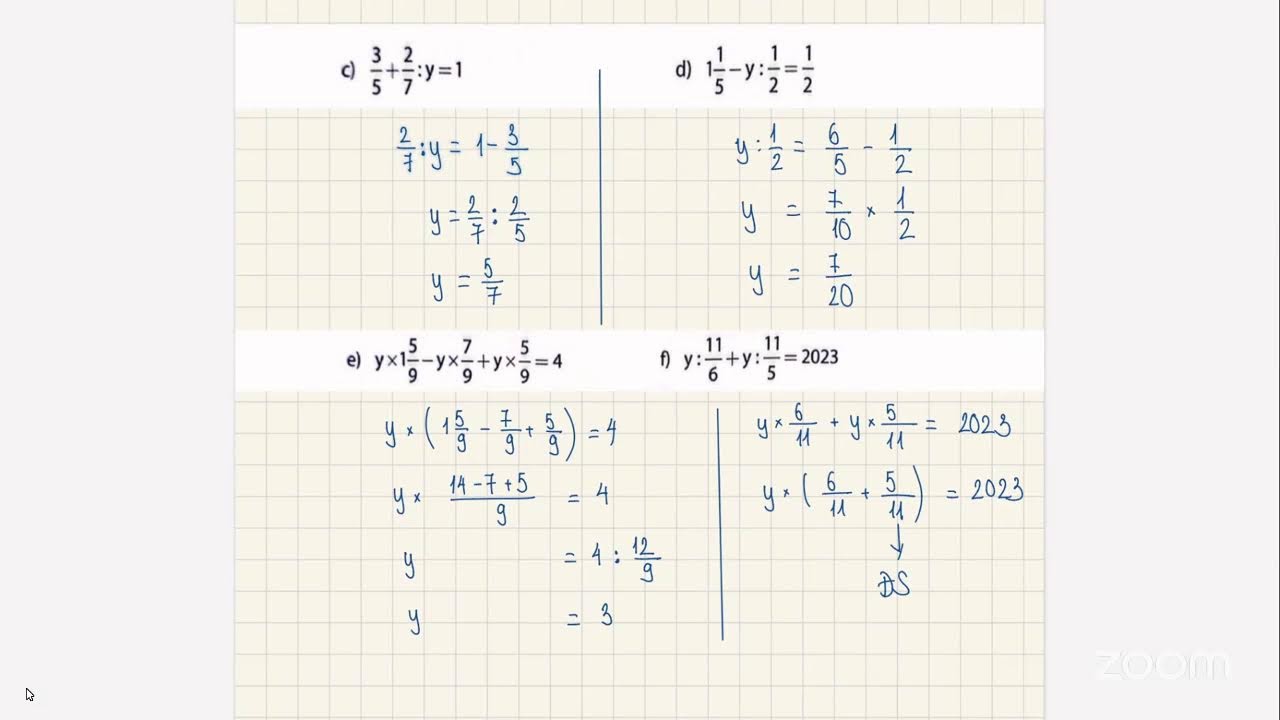 c) 3/5 + 2/7 : y = 1
2/7 : y = 1 - 3/5
y = 2/7 : 2/5
y = 5/7
d) 1 1/5 - y : 1/2 = 1/2
y : 1/2 = 6/5 - 1/2
y = 7/10 × 1/2
y = 7/20
e) y × 1 5/9 - y × 7/9 + y × 5/9 = 4
y × (1 5/9 - 7/9 + 5/9) = 4
y × (14 - 7 + 5)/9 = 4
y = 4 : 12/9
y = 3
f) y : 11/6 + y : 11/5 = 2023
y × 6/11 + y × 5/11 = 2023
y × (6/11 + 5/11) = 2023
↓
ĐS
zoom